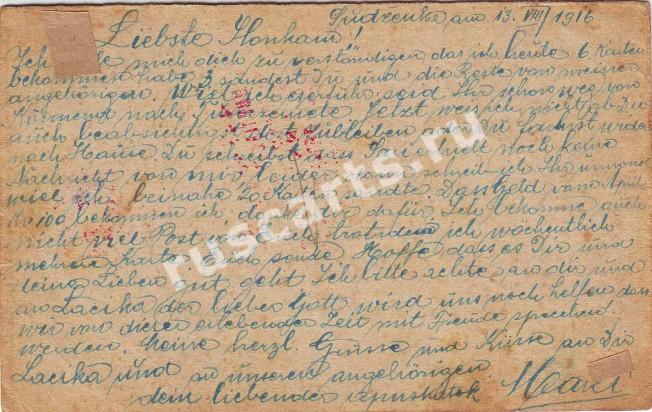 Sudzenka am 13. VIII/1916
Liebste Honkam!
Ich mich dich zu verständigen das ich heute 6 Karten
bekommen habe 3 sandest Du und die Reste von meinen
angehörigen. Wie ich erfuhr, seid Ihr schon weg von
Körmend nach Jetzt weis ich nicht ob Du
auch beabsichtigst dort zu bleiben oder Du fährst wieder
nach Hause. Du schreibst das noch keine
Nachricht von mir
viel ich beinahe 20 Karten sandte. Das Geld vom April
Ko 100 bekommen ich danke dir dafür. Ich bekomme auch
nicht viel Post von euch trotzdem ich wöchentlich
mehrere Karten euch sende. Hoffe dass es Dir und
deine Lieben gut geht Ich bitte achte an dir und
an Lacika der lieber Gott wird uns noch helfen dass
wir von dieser erlebenden Zeit mit Freude sprechen
werden. Meine herzl. Grüsse und Küsse an Dir
Lacika und an unseren angehörigen
dein liebender apushatok
ruscarts.ru